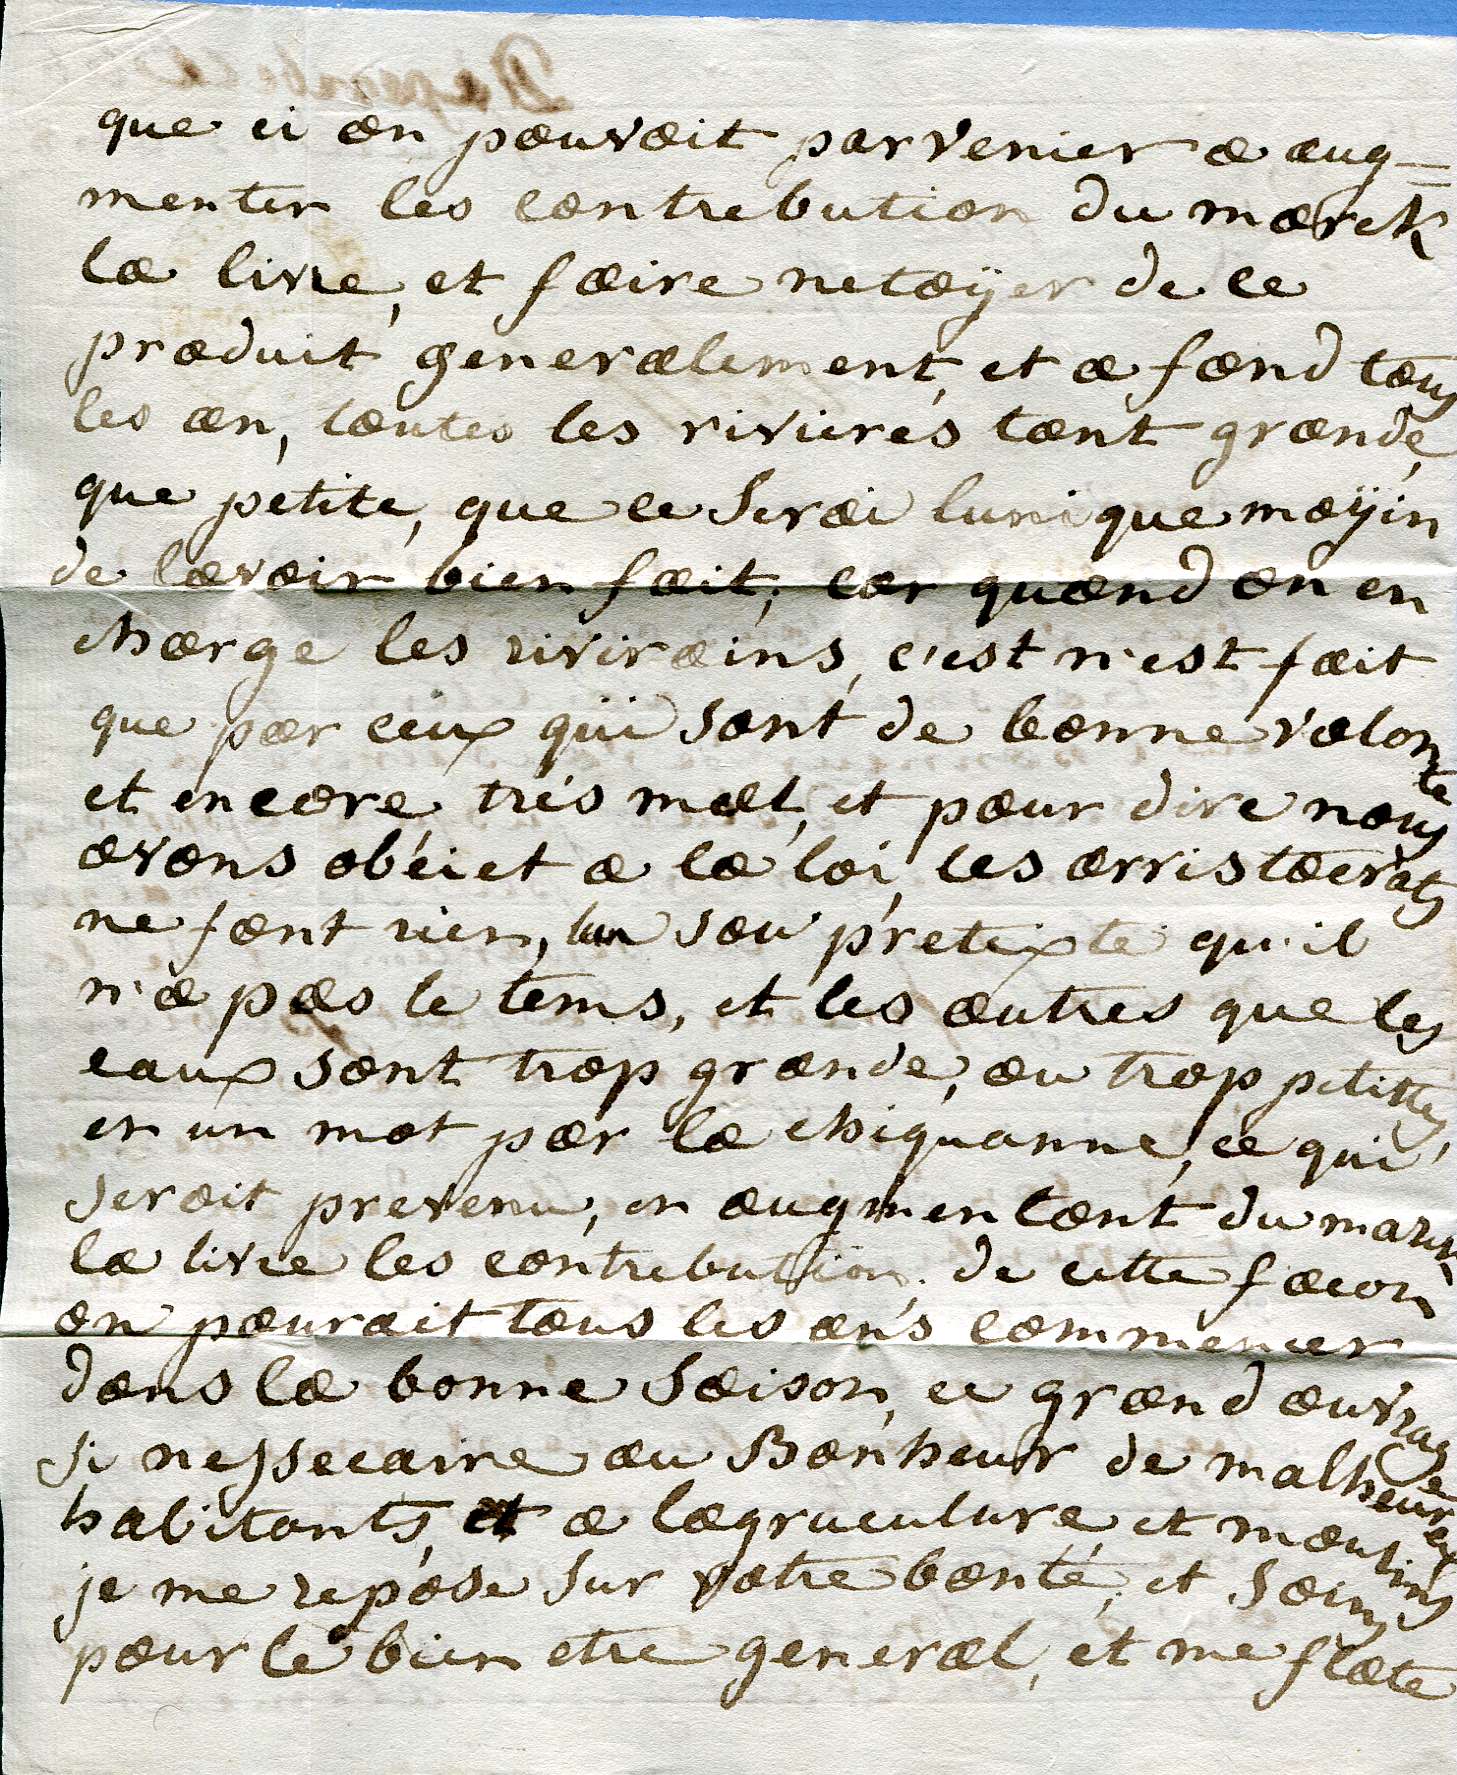 que ci on pouvoit parvenier a aug=
menter les contrebution du marck
la livre, et faire netoÿer de ce
produit generalement, et a fond tous
les an, toutes les rivieres tant grande,
que petite, que ce serai lunique moÿin
de lavoir bien fait; car quand on en
charge les riverains, c'est n'est fait
que par ceux qui sont de bonne volonté
et encore, trés mal, et pour dire nous
avons obéiet a la loi, les arristocrats
ne font rien, sou pretexte qu'il
n'a pas le tems, et les autres que les
eaux sont trop grande, ou trop petitte,
en un mot par la chiquanne, ce qui
seroit prevenu, en augmentant du marck
la livre les contrebution, de cette facon
on pourait tous les ans commencer
dans la bonne saison, ce grand ouvrage
si nessecaire au Bonheur de malheureux
habitants, et a lagruculure, et moulins
je me repose sur votre bonté, et soins
pour le bien etre general, et me flate